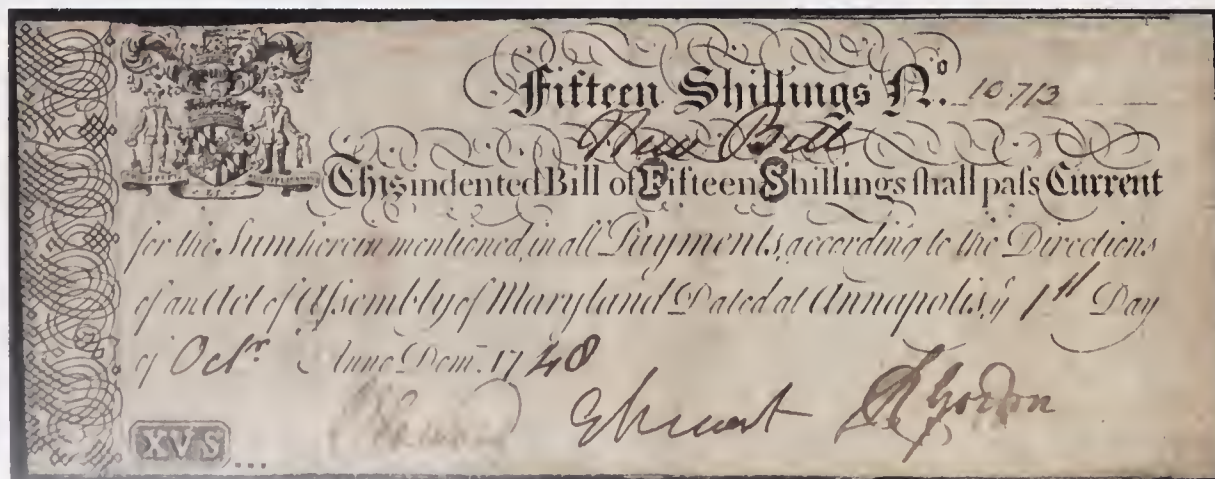 Fifteen Shillings No. 10713
New Bill
This indented Bill of Fifteen Shillings shall paſs Current
for the Sum herein mentioned, in all Payments, according to the Directions
of an Act of Aſsembly of Maryland Dated at Annapolis, ye 1st Day
of Octr. Anno Dom. 1748
R Gordon
XVS